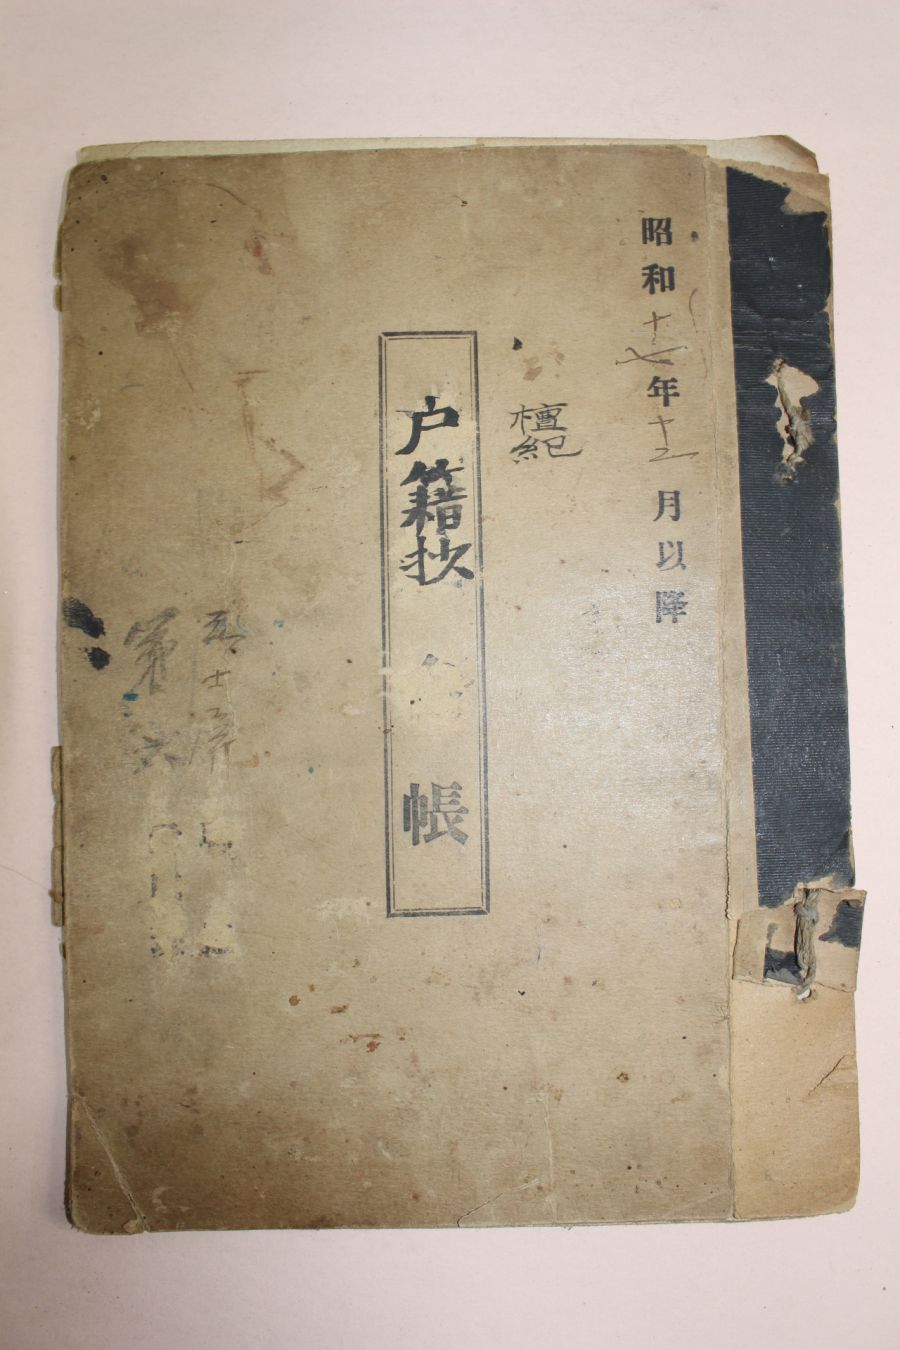 昭和十七年十二月以降
檀紀
户籍抄
帳
第六